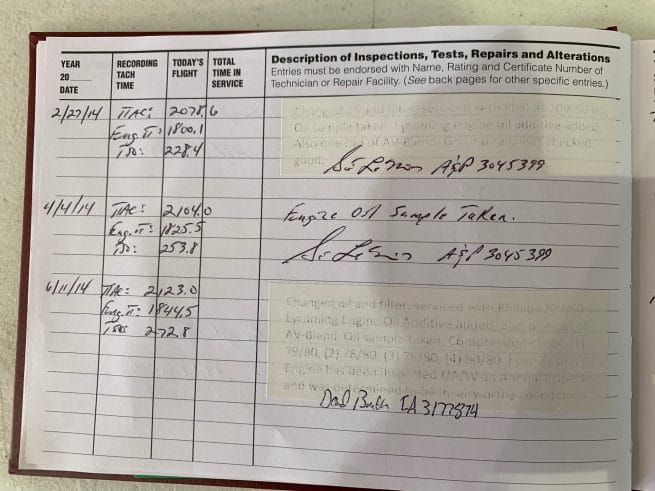 YEAR 20___ DATE
RECORDING TACH TIME
TODAY'S FLIGHT
TOTAL TIME IN SERVICE
Description of Inspections, Tests, Repairs and Alterations
Entries must be endorsed with Name, Rating and Certificate Number of
Technician or Repair Facility. (See back pages for other specific entries.)
2/27/14 TTAC: 2078.6
Eng. TT: 1800.1
TSO: 228.4
Changed oil and filter, serviced with Phillips 20W50 oil,
Oil sample taken, Lycoming engine oil additive added,
Also one can of AV-Blend. Ground run, leak checked
good.
A&P 3045399
4/4/14 TTAC: 2104.0 Engine Oil Sample Taken.
Eng. TT: 1825.5
TSO: 253.8 A&P 3045399
6/11/14 TTAC: 2123.0
Eng. TT: 1844.5
TSO: 272.8
Changed oil and filter, serviced with Phillips 20W50
Lycoming Engine Oil Additive added, also one can of
AV-Blend. Oil sample taken, Compression check (1)
79/80, (2) 76/80, (3) 76/80, (4) 80/80. I certify that this
Engine has been inspected I/A/W an Annual Inspection
and was determined to be in airworthy condition.
IA 3177874